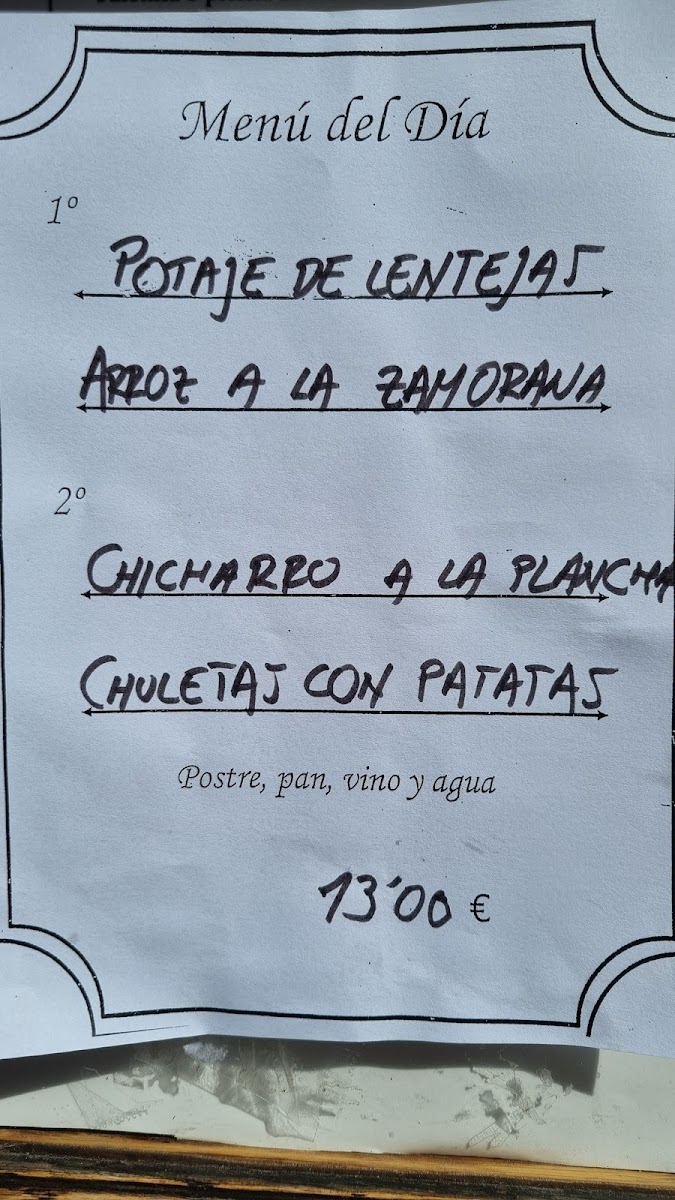 Menú del Día
1º
POTAJE DE LENTEJAS
ARROZ A LA ZAMORANA
2º
CHICHARRO A LA PLANCHA
CHULETAS CON PATATAS
Postre, pan, vino y agua
13'00 €